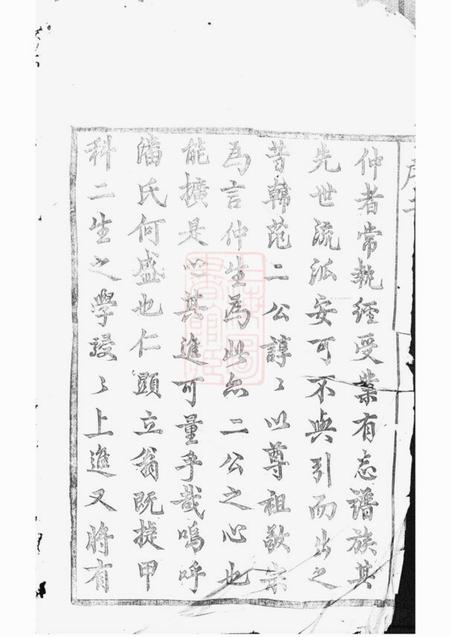 仲者常執經受業有志譜族其
先世流派安可不與引而出之
昔韓范二公諄〻以尊祖敬宗
為言仲生為此亦二公之心也
能擴是心其進可量乎哉嗚呼
潘氏何盛也仁顯立翁既掟甲
科二生之學駸〻上進又將有